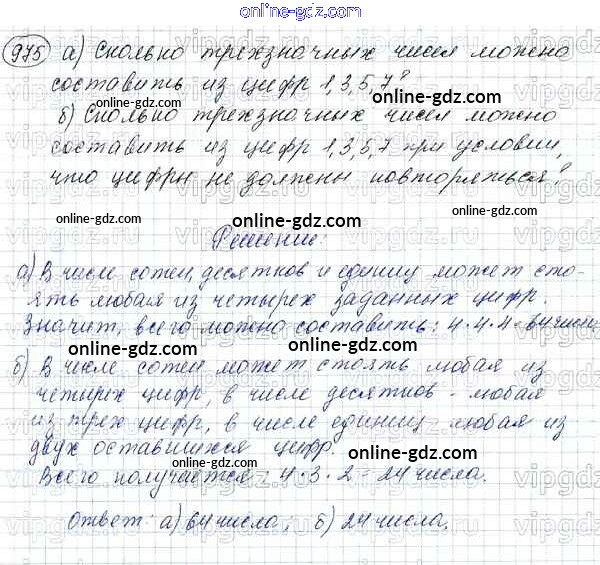 online-gdz.com
975 а) Сколько трехзначных чисел можно
составить из цифр 1,3,5,7?
online-gdz.com
б) Сколько трехзначных чисел можно
online-gdz.com
составить из цифр 1,3,5,7 при условии,
что цифры не должны повторяться?
online-gdz.com online-gdz.com online-gdz.com
Решение:
а) В числе сотен, десятков и единиц может сто-
online-gdz.com
ять любая из четырех заданных цифр.
Значит, всего можно составить: 4·4·4=64 числа
online-gdz.com online-gdz.com
б) В числе сотен может стоять любая из
четырех цифр, в числе десятков - любая
online-gdz.com
из трех цифр, в числе единиц любая из
двух оставшихся цифр.
online-gdz.com online-gdz.com
Всего получается: 4·3·2=24 числа.
Ответ: а) 64 числа; б) 24 числа.
online-gdz.com
vipgdz.ru